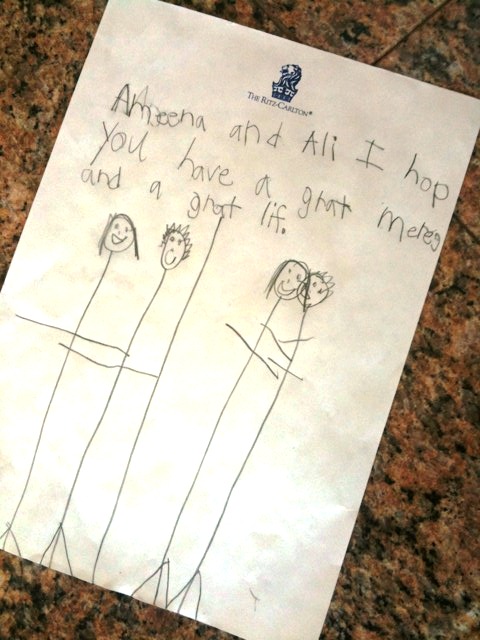 THE RITZ-CARLTON®
Ameena and Ali I hop
you have a grat mereg
and a grat lif.